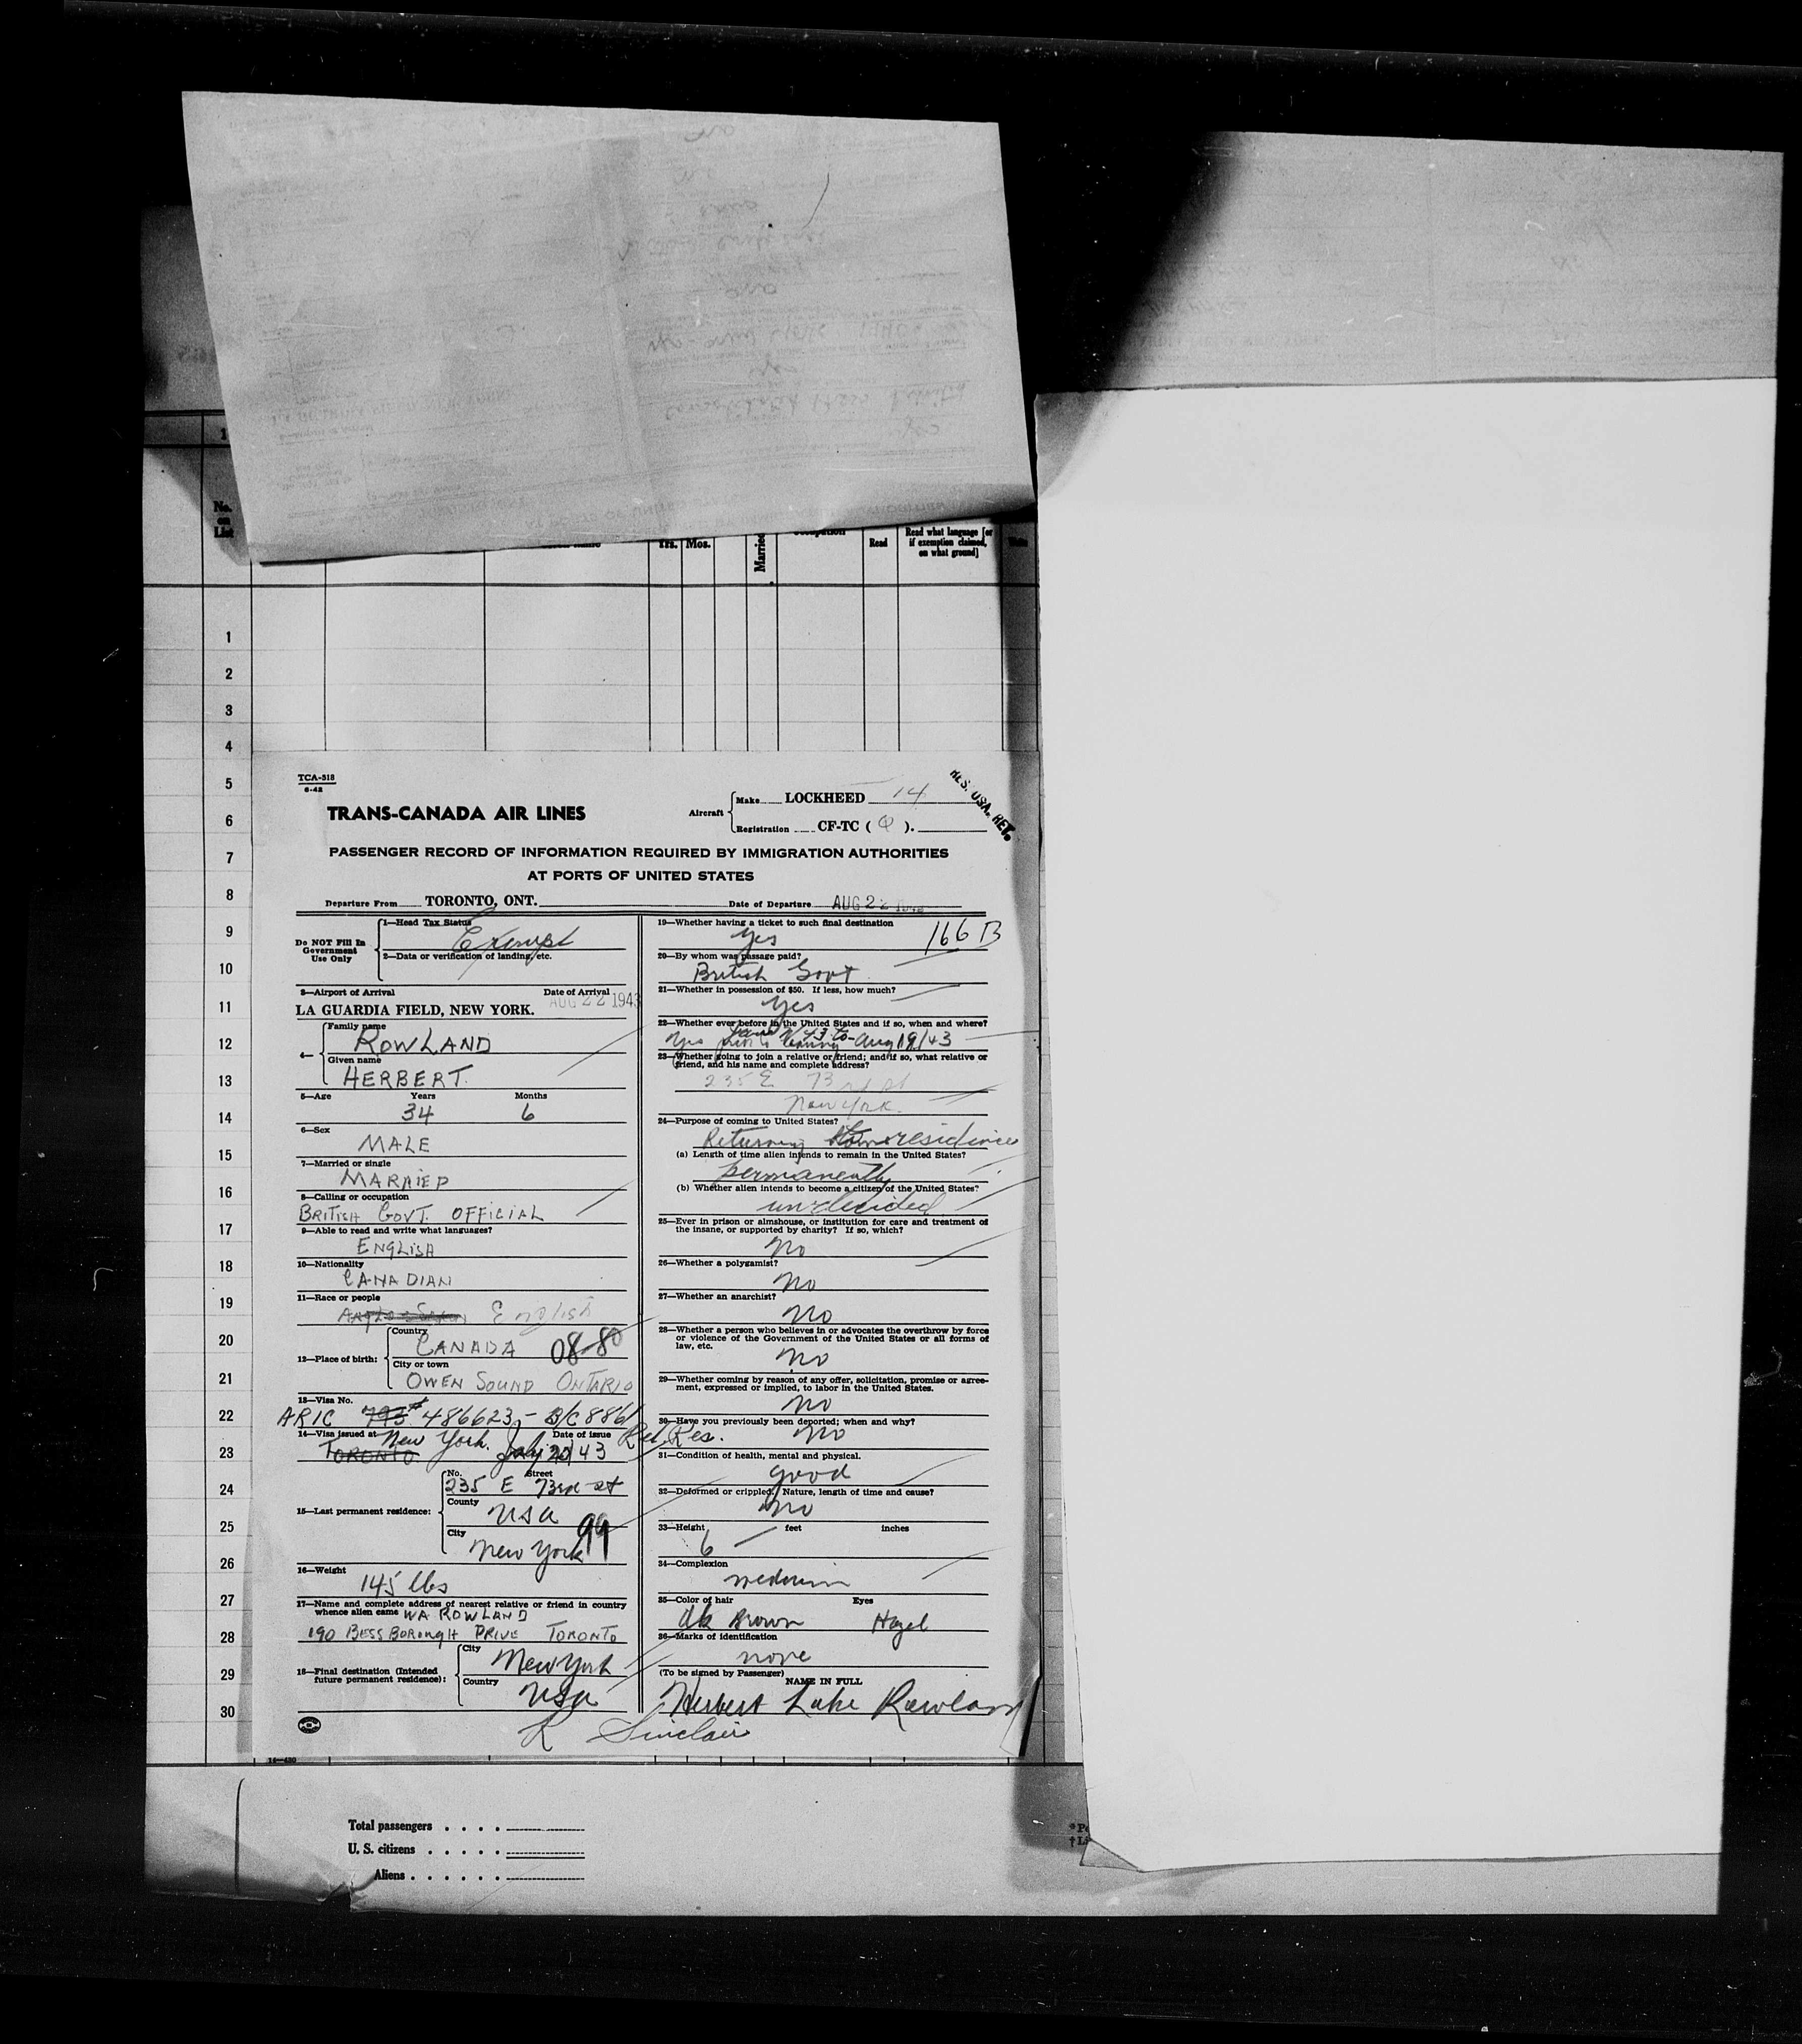 No.
on
List
Yrs. Mos.
Married
Read
Read what language [or
if exemption claimed,
on what ground]
1
2
3
4
5
6
7
8
9
10
11
12
13
14
15
16
17
18
19
20
21
22
23
24
25
26
27
28
29
30
TCA-518
6-42
TRANS-CANADA AIR LINES
Aircraft
Make LOCKHEED 14
Registration CF-TC ( Q ).
RES. USA. RET.
PASSENGER RECORD OF INFORMATION REQUIRED BY IMMIGRATION AUTHORITIES
AT PORTS OF UNITED STATES
Departure From TORONTO, ONT. Date of Departure AUG 22
Do NOT Fill In
Government
Use Only
1—Head Tax Status
Exempt
2—Data or verification of landing, etc.
3—Airport of Arrival Date of Arrival
LA GUARDIA FIELD, NEW YORK. AUG 22 1943
4—
Family name
ROWLAND
Given name
HERBERT.
5—Age Years Months
34 6
6—Sex
MALE
7—Married or single
MARRIED
8—Calling or occupation
BRITISH GOVT. OFFICIAL
9—Able to read and write what languages?
ENGLISH
10—Nationality
CANADIAN
11—Race or people
English
12—Place of birth:
Country
CANADA 08-80
City or town
OWEN SOUND ONTARIO
13—Visa No.
ARIC 793 # 486623 - B/C 8861
14—Visa issued at Date of issue
New York. July 20/43 Ret. Res.
TORONTO
15—Last permanent residence:
No. Street
235 E 73rd st
County
USA
City
New York 99
16—Weight
145 lbs
17—Name and complete address of nearest relative or friend in country
whence alien came WA ROWLAND
190 BESSBOROUGH DRIVE TORONTO
18—Final destination (Intended
future permanent residence):
City
New York
Country
USA
19—Whether having a ticket to such final destination
yes 166 B
20—By whom was passage paid?
British Govt
21—Whether in possession of $50. If less, how much?
Yes
22—Whether ever before in the United States and if so, when and where?
Yes Aug 19/43
23—Whether going to join a relative or friend; and if so, what relative or
friend, and his name and complete address?
235 E 73rd st
New York.
24—Purpose of coming to United States?
Returning residence
(a) Length of time alien intends to remain in the United States?
permanently
(b) Whether alien intends to become a citizen of the United States?
undecided
25—Ever in prison or almshouse, or institution for care and treatment of
the insane, or supported by charity? If so, which?
No
26—Whether a polygamist?
No
27—Whether an anarchist?
No
28—Whether a person who believes in or advocates the overthrow by force
or violence of the Government of the United States or all forms of
law, etc.
No
29—Whether coming by reason of any offer, solicitation, promise or agree-
ment, expressed or implied, to labor in the United States.
No
30—Have you previously been deported; when and why?
No
31—Condition of health, mental and physical.
good
32—Deformed or crippled. Nature, length of time and cause?
No
33—Height feet inches
6 —
34—Complexion
medium
35—Color of hair Eyes
dk Brown Hazel
36—Marks of identification
none
(To be signed by Passenger)
NAME IN FULL
Herbert Lake Rowland
R Sinclair
16—430
Total passengers
U. S. citizens
Aliens